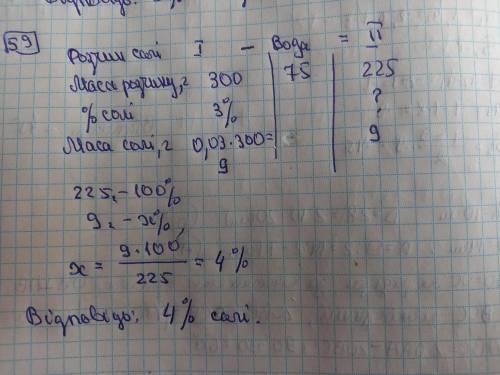 59
Розчин солі I - Вода = II
Маса розчину, г 300 75 225
% солі 3% ?
Маса солі, г 0,03·300= 9
9
225г - 100%
9г - x%
x = 9·100 / 225 = 4%
Відповідь: 4% солі.